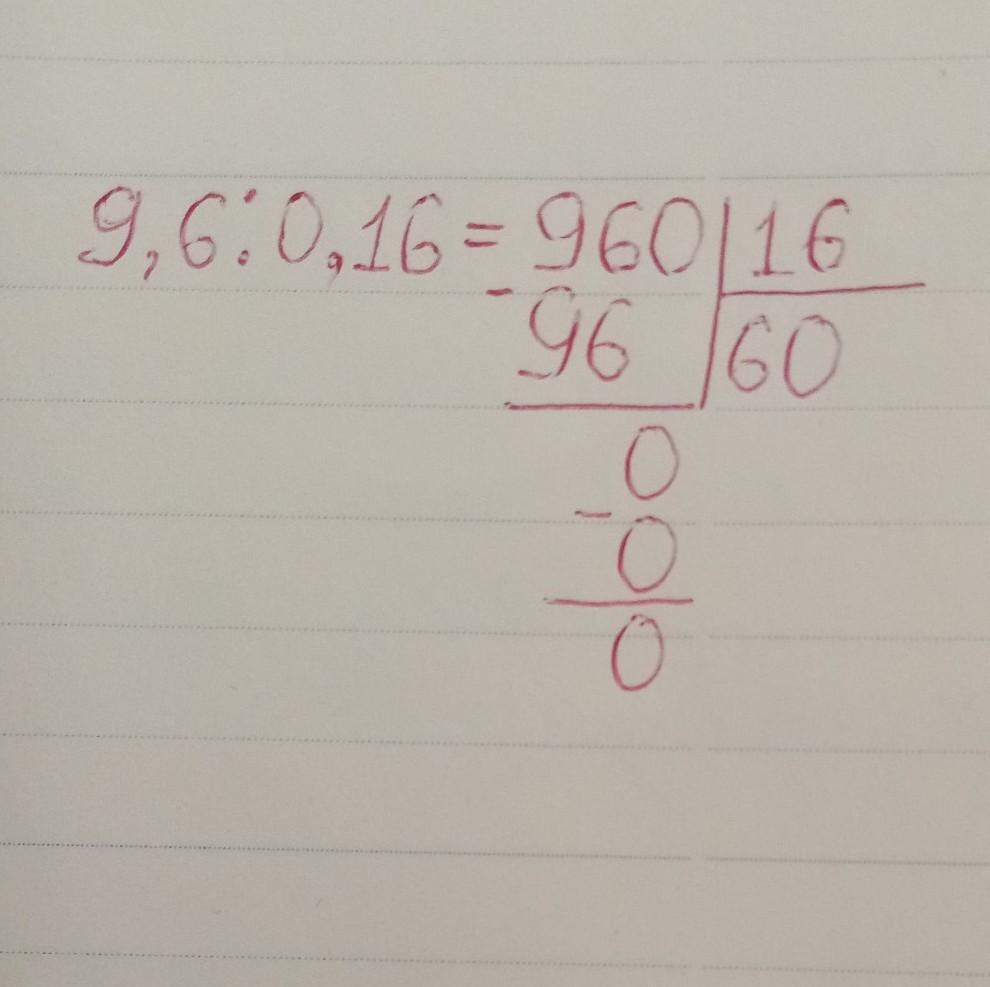 9,6:0,16=960|16
-96 |60
0
-0
0